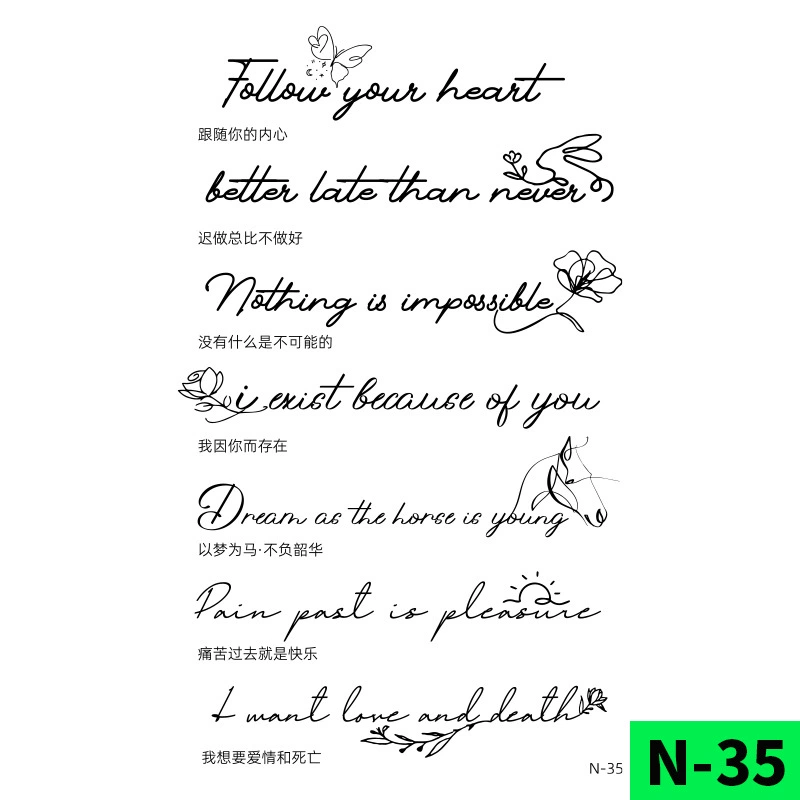 Follow your heart
跟随你的内心
better late than never
迟做总比不做好
Nothing is impossible
没有什么是不可能的
i exist because of you
我因你而存在
Dream as the horse is young
以梦为马·不负韶华
Pain past is pleasure
痛苦过去就是快乐
I want love and death
我想要爱情和死亡
N-35
N-35